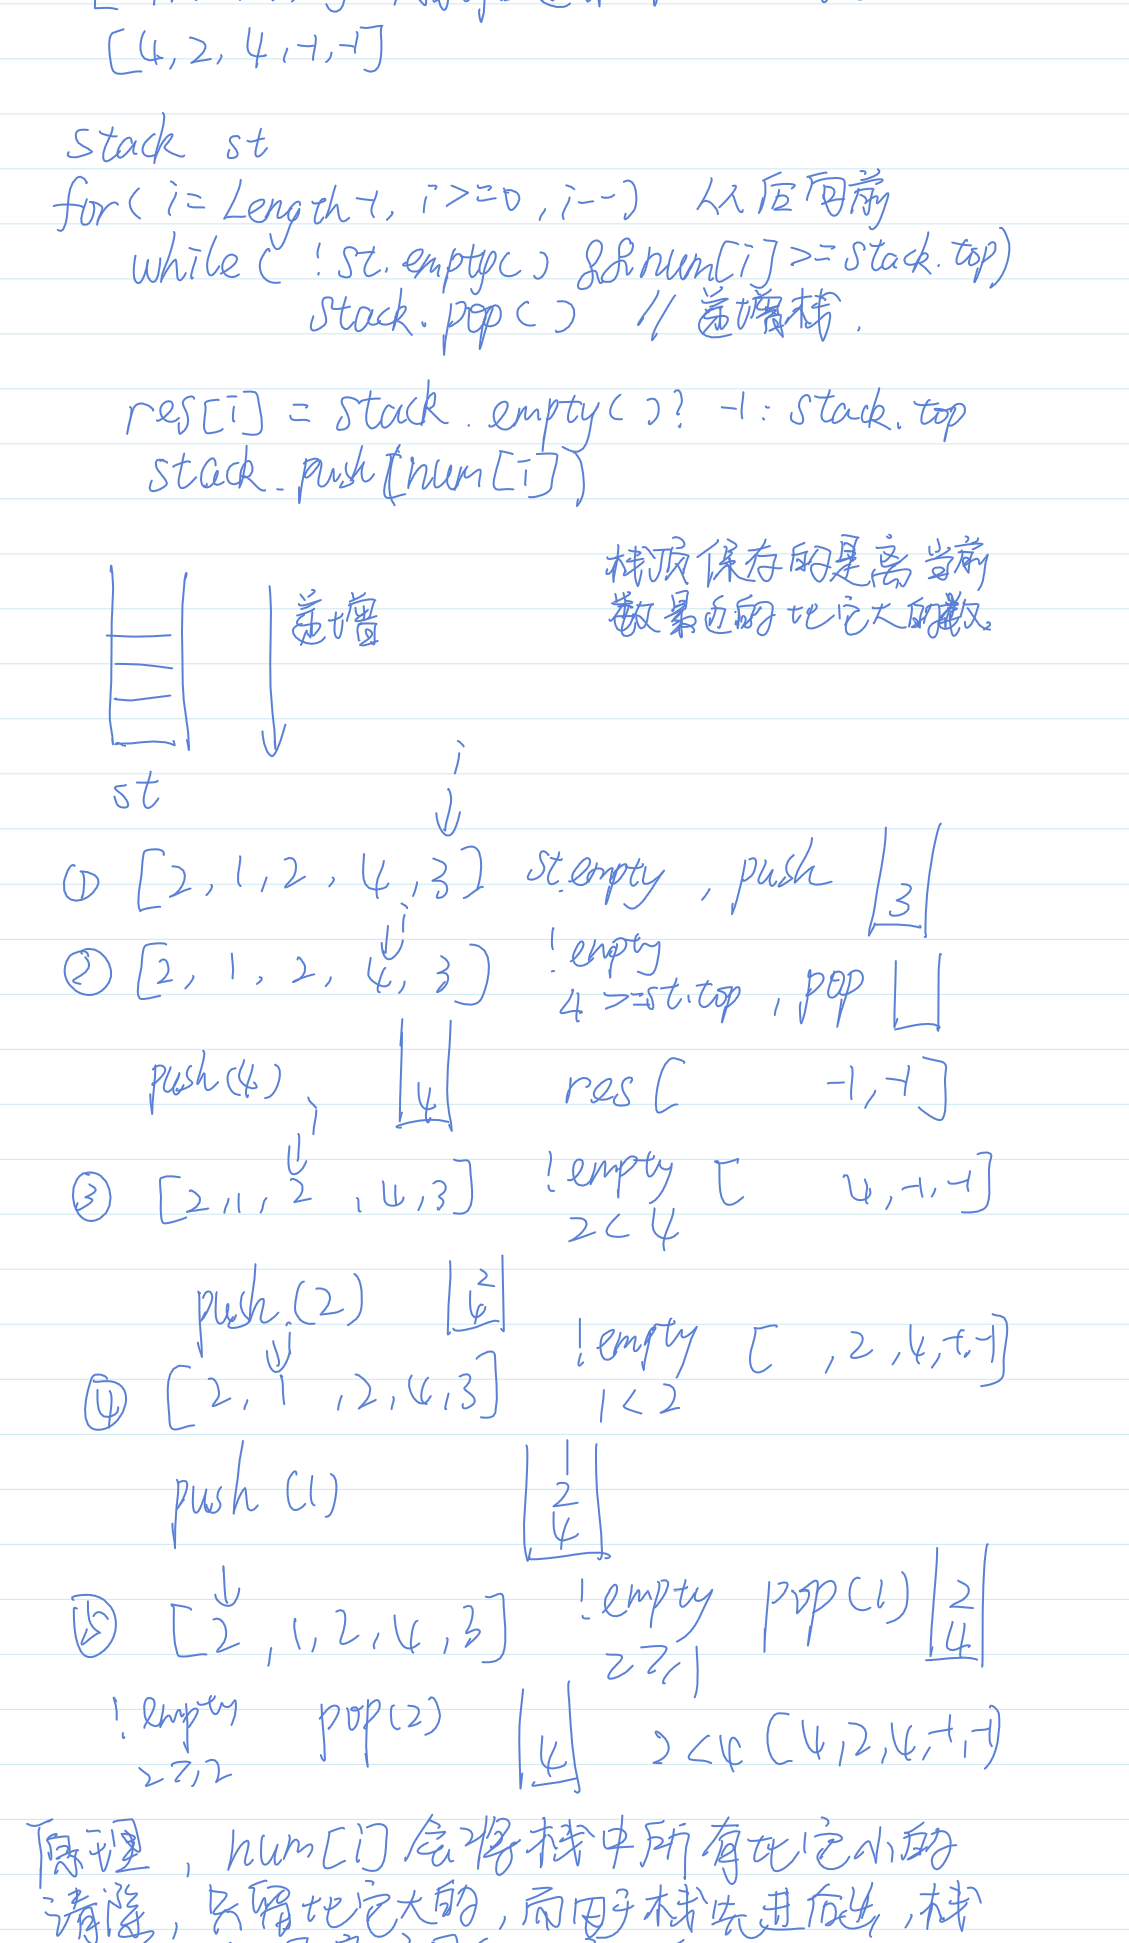 [4, 2, 4, -1, -1]
stack st
for( i = Length-1, i>=0, i--) 从后向前
while( !st.empty() && num[i] >= stack.top)
stack.pop() // 递增栈.
res[i] = stack.empty()? -1 : stack.top
stack.push(num[i])
栈顶保存的是离当前
数最近的比它大的数.
递增
st
i
① [2, 1, 2, 4, 3] st.empty, push 3
i
② [2, 1, 2, 4, 3] !empty
4 >= st.top, pop
push(4) 4 res[ -1, -1]
i
③ [2, 1, 2, 4, 3] !empty [ 4, -1, -1]
2 < 4
push(2) 2 4
i
④ [2, 1, 2, 4, 3] !empty [ , 2, 4, -1, -1]
1 < 2
push(1) 1 2 4
⑤ [2, 1, 2, 4, 3] !empty pop(1) 2 4
2 ≥ 1
!empty pop(2) 4 2 < 4 [4, 2, 4, -1, -1]
2 ≥ 2
原理, num[i] 会将栈中所有比它小的
清除, 只留比它大的, 而由于栈先进后出, 栈